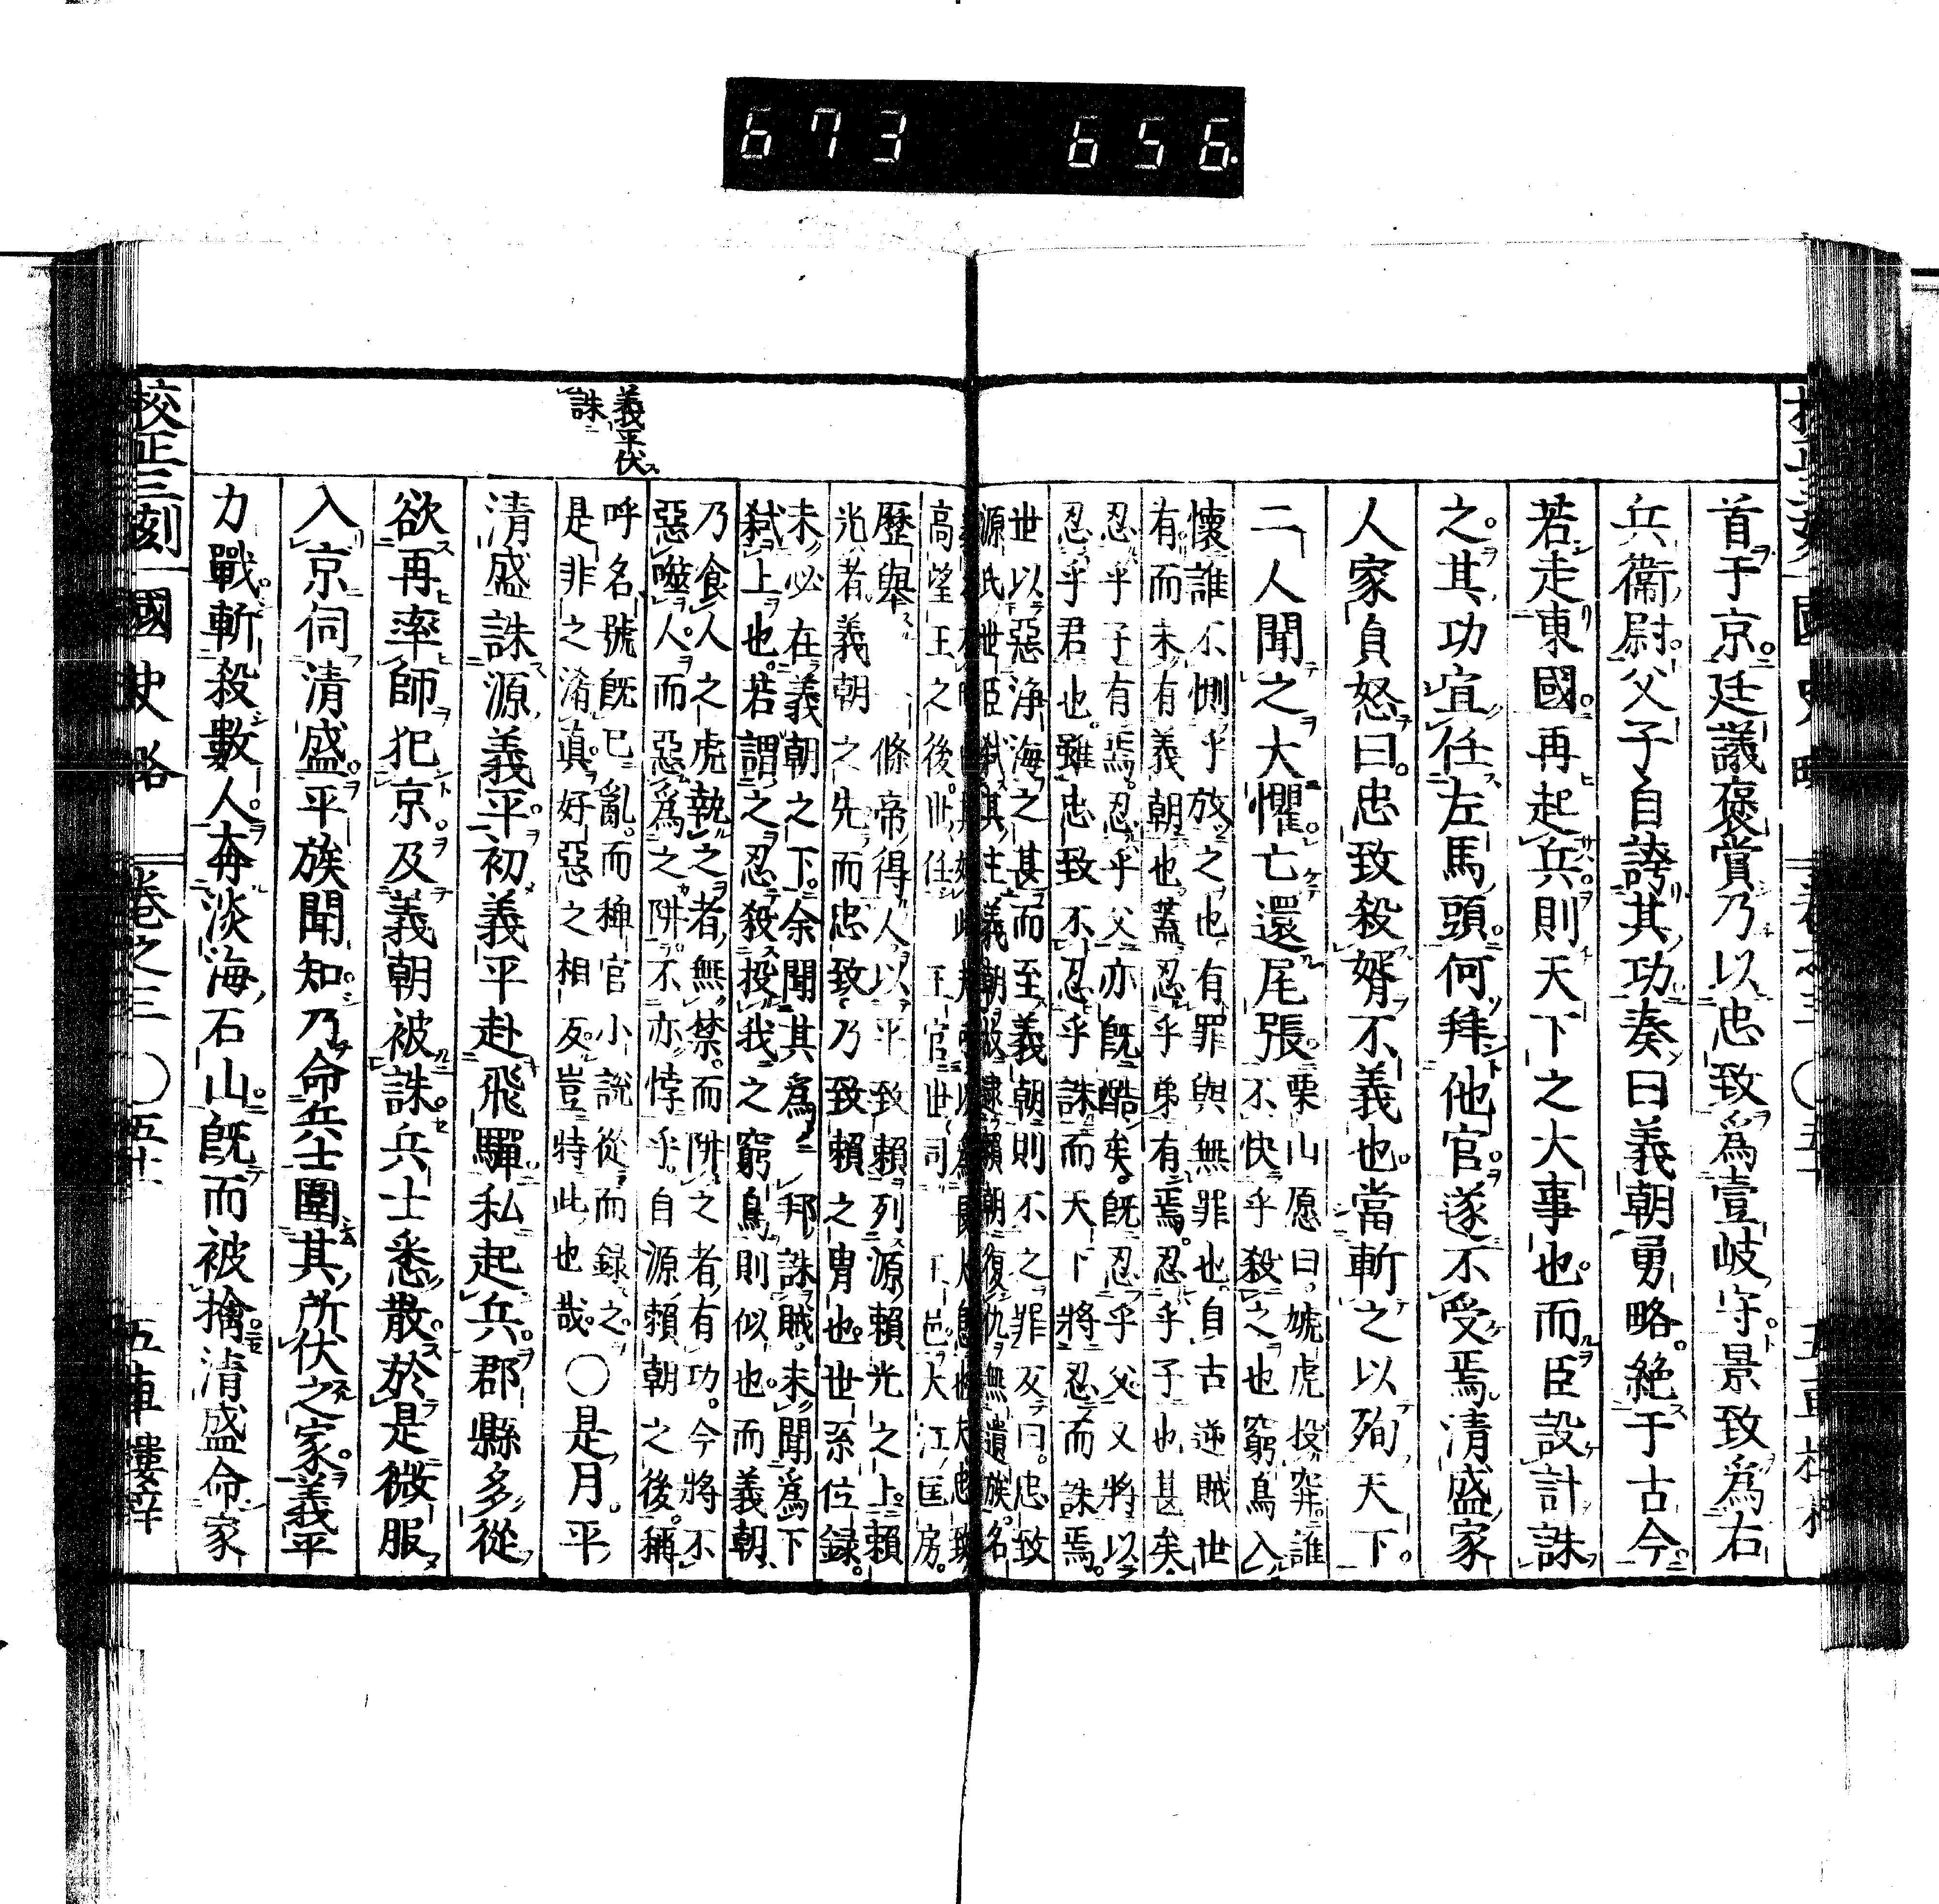 673 656.
首于京。廷議褒賞乃以忠致爲壹岐守。景致爲右
兵衞尉。父子自誇其功奏曰義朝勇略。絶于古今。
若走東國。再起兵。則天下之大事也。而臣設計誅
之。其功宜任左馬頭。何拜他官。遂不受焉。清盛家
人家貞怒曰。忠致殺婿不義也。當斬之以殉天下。
二人聞之大懼。亡還尾張。
栗山愿曰。虓虎投穽。誰
不快乎殺之也窮鳥入
懷誰不惻乎放之也有罪與無罪也。自古逆賊世
有。而未有義朝也。蓋忍乎弟有焉。忍乎子也甚矣。
忍乎子有焉。忍乎父亦既酷矣。既忍乎父又將以
忍乎君也。雖忠致不忍乎誅而天下將忍而誅焉。
世以惡淨海之甚而至義朝則不之罪又曰。忠致
源氏世臣弑其主義朝
賴朝復仇無遺族。名
高望王之後。世任 王官世司 王邑大江匡房。
歷舉 一條帝得人以平致賴列源賴光之上。賴
光者義朝之先而忠致乃致賴之胄也。世系位錄。
未必在義朝之下。余聞其爲 邦誅賊。未聞爲下
弑上也。若謂之忍殺投我之窮鳥則似也。而義朝
乃食人之虎執之者無禁。而阱之者有功。今將不
惡噬人。而惡爲之阱。不亦悖乎。自源賴朝之後。稱
呼名號既已亂。而稗官小說從而錄之。
是非之淆真。好惡之相反。豈特此也哉。
○是月。平
清盛誅源義平。初義平赴飛驒私起兵。郡縣多從
欲再率師犯京。及義朝被誅。兵士悉散。於是微服
入京伺清盛。平族聞知。乃命兵士圍其所伏之家。義平
力戰斬殺數人。奔淡海石山。既而被擒。清盛命家
義平伏
誅
校正三刻
國史略
卷之三
○五十
五車樓梓